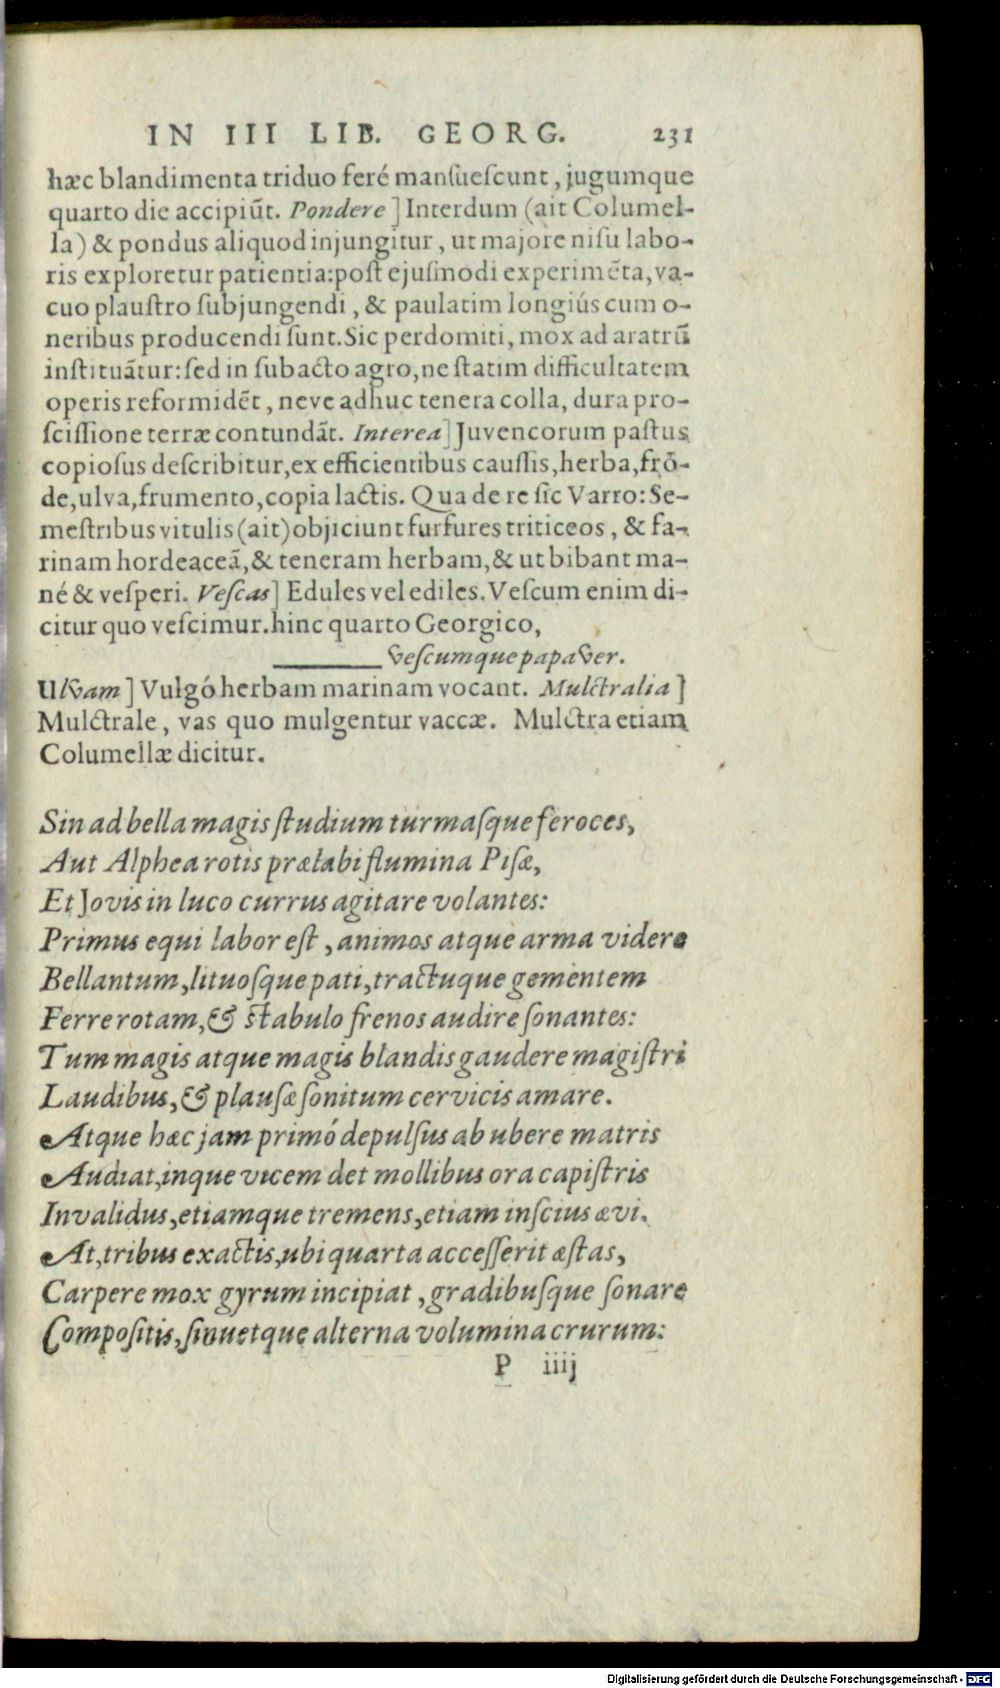 IN III LIB. GEORG. 231
hæc blandimenta triduo feré manſueſcunt, jugumque
quarto die accipiũt. Pondere] Interdum (ait Columel-
la) & pondus aliquod injungitur, ut majore niſu labo-
ris exploretur patientia:poſt ejuſmodi experimẽta,va-
cuo plauſtro ſubjungendi, & paulatim longiús cum o-
neribus producendi ſunt.Sic perdomiti, mox ad aratrũ
inſtituãtur:ſed in ſubacto agro,ne ſtatim difficultatem
operis reformidẽt, neve adhuc tenera colla, dura pro-
ſciſſione terræ contundãt. Interea] Juvencorum paſtus
copioſus deſcribitur,ex efficientibus cauſſis,herba,frõ-
de,ulva,frumento,copia lactis. Qua de re ſic Varro:Se-
meſtribus vitulis (ait) objiciunt furfures triticeos, & fa-
rinam hordeaceã,& teneram herbam,& ut bibant ma-
né & veſperi. Veſcas] Edules vel ediles.Veſcum enim di-
citur quo veſcimur.hinc quarto Georgico,
veſcumque papaver.
Ulvam] Vulgó herbam marinam vocant. Mulctralia]
Mulctrale, vas quo mulgentur vaccæ. Mulctra etiam
Columellæ dicitur.
Sin ad bella magis ſtudium turmaſque feroces,
Aut Alphea rotis prælabi flumina Piſæ,
Et Jovis in luco currus agitare volantes:
Primus equi labor eſt, animos atque arma videre
Bellantum,lituoſque pati,tractuque gementem
Ferre rotam,& ſtabulo frenos audire ſonantes:
Tum magis atque magis blandis gaudere magiſtri
Laudibus,& plauſæ ſonitum cervicis amare.
Atque hæc jam primó depulſus ab ubere matris
Audiat,inque vicem det mollibus ora capiſtris
Invalidus,etiamque tremens,etiam inſcius ævi.
At,tribus exactis,ubi quarta acceſſerit æſtas,
Carpere mox gyrum incipiat, gradibuſque ſonare
Compoſitis,ſinuetque alterna volumina crurum:
P iiij
Digitalisierung gefördert durch die Deutsche Forschungsgemeinschaft - DFG